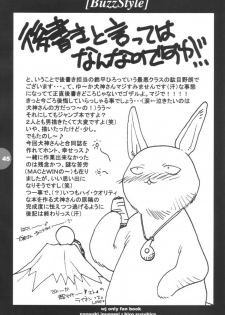 [BuzzStyle]
後書きと言っては
なんなのですが!!
と、いうことで後書き担当の鈴平ひろっていう最悪クラスの駄目野郎で
ございます…て、ゆーか犬神さんマジすみませんです(汗)て事が
正直後書きどころじゃないでゴザル。マジで!!!!
きっと今ごろ後悔していらっしゃる事でしょう…(涙…泣きたいのは
犬神さんの方だっつーの!)ううう)
それにしてもジャンプ本ですよ?
2人とも男描きたくて大変ですよ(笑)
いや、描いたったけど…少し。
でもたのし〜。
今回犬神さんと合同誌を
作れてホント、幸せっス♥
一緒に作業出来なかったの
は残念かつ、謎な苦労
(MACとWINの〜)も
ましたが、いい思い出に
なりそうですし(笑)
つー事で、(?)いつもハイ・クオリティ
な本を作る犬神さんの原稿の
完成度に怯えつつ逃げるように
後記は終わりっス(汗)
45
wj only fan book
naoyuki inugami : hiro suzuhira